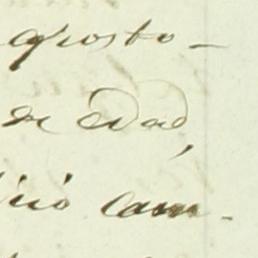 agosto —
de edad,
ició cam-